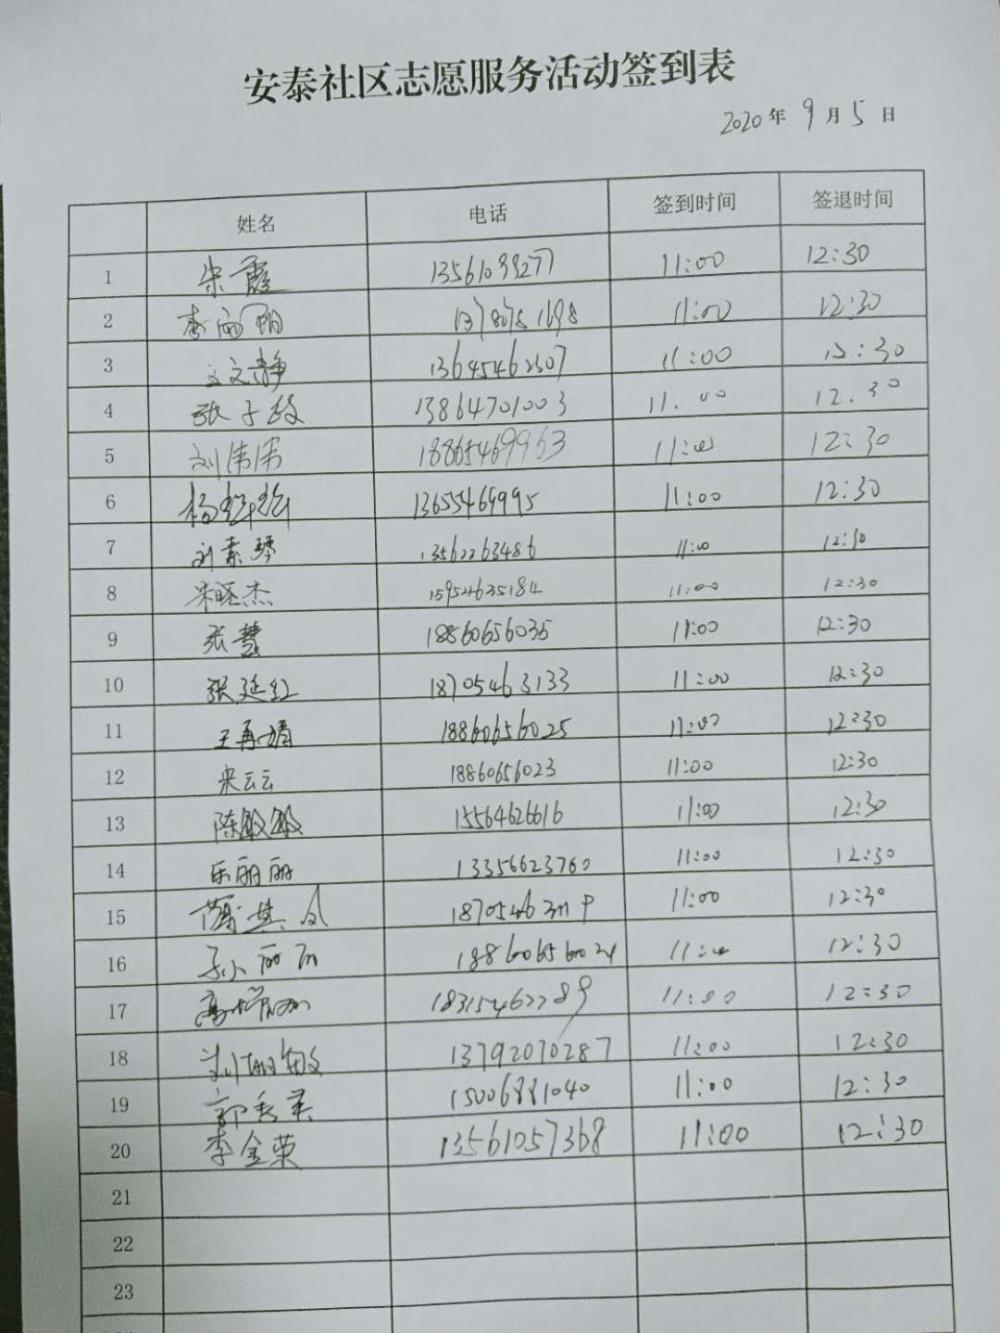 安泰社区志愿服务活动签到表
2020年 9月5日
姓名 电话 签到时间 签退时间
1 宋霞 13561099277 11:00 12:30
2 李 11:00 12:30
3 文静 13645462307 11:00 :30
4 张子 13864701003 11.00 12.30
5 刘伟伟 18865469963 11:00 12:30
6 杨 13655469995 11:00 12:30
7 刘素琴 13562263486 11:00 12:30
8 宋晓杰 159524635184 11:00 12:30
9 张慧 18860656035 11:00 12:30
10 张延红 18705463133 11:00 12:30
11 王再娟 18860656025 11:00 12:30
12 宋云云 18860656023 11:00 12:30
13 陈敏敏 15564626616 11:00 12:30
14 乐丽丽 13356623760 11:00 12:30
15 其凤 11:00 12:30
16 孙丽丽 18860656024 11:00 12:30
17 高 18315462289 11:00 12:30
18 刘敏 13792070287 11:00 12:30
19 郭秀英 15006881040 11:00 12:30
20 李金荣 13561057368 11:00 12:30
21
22
23